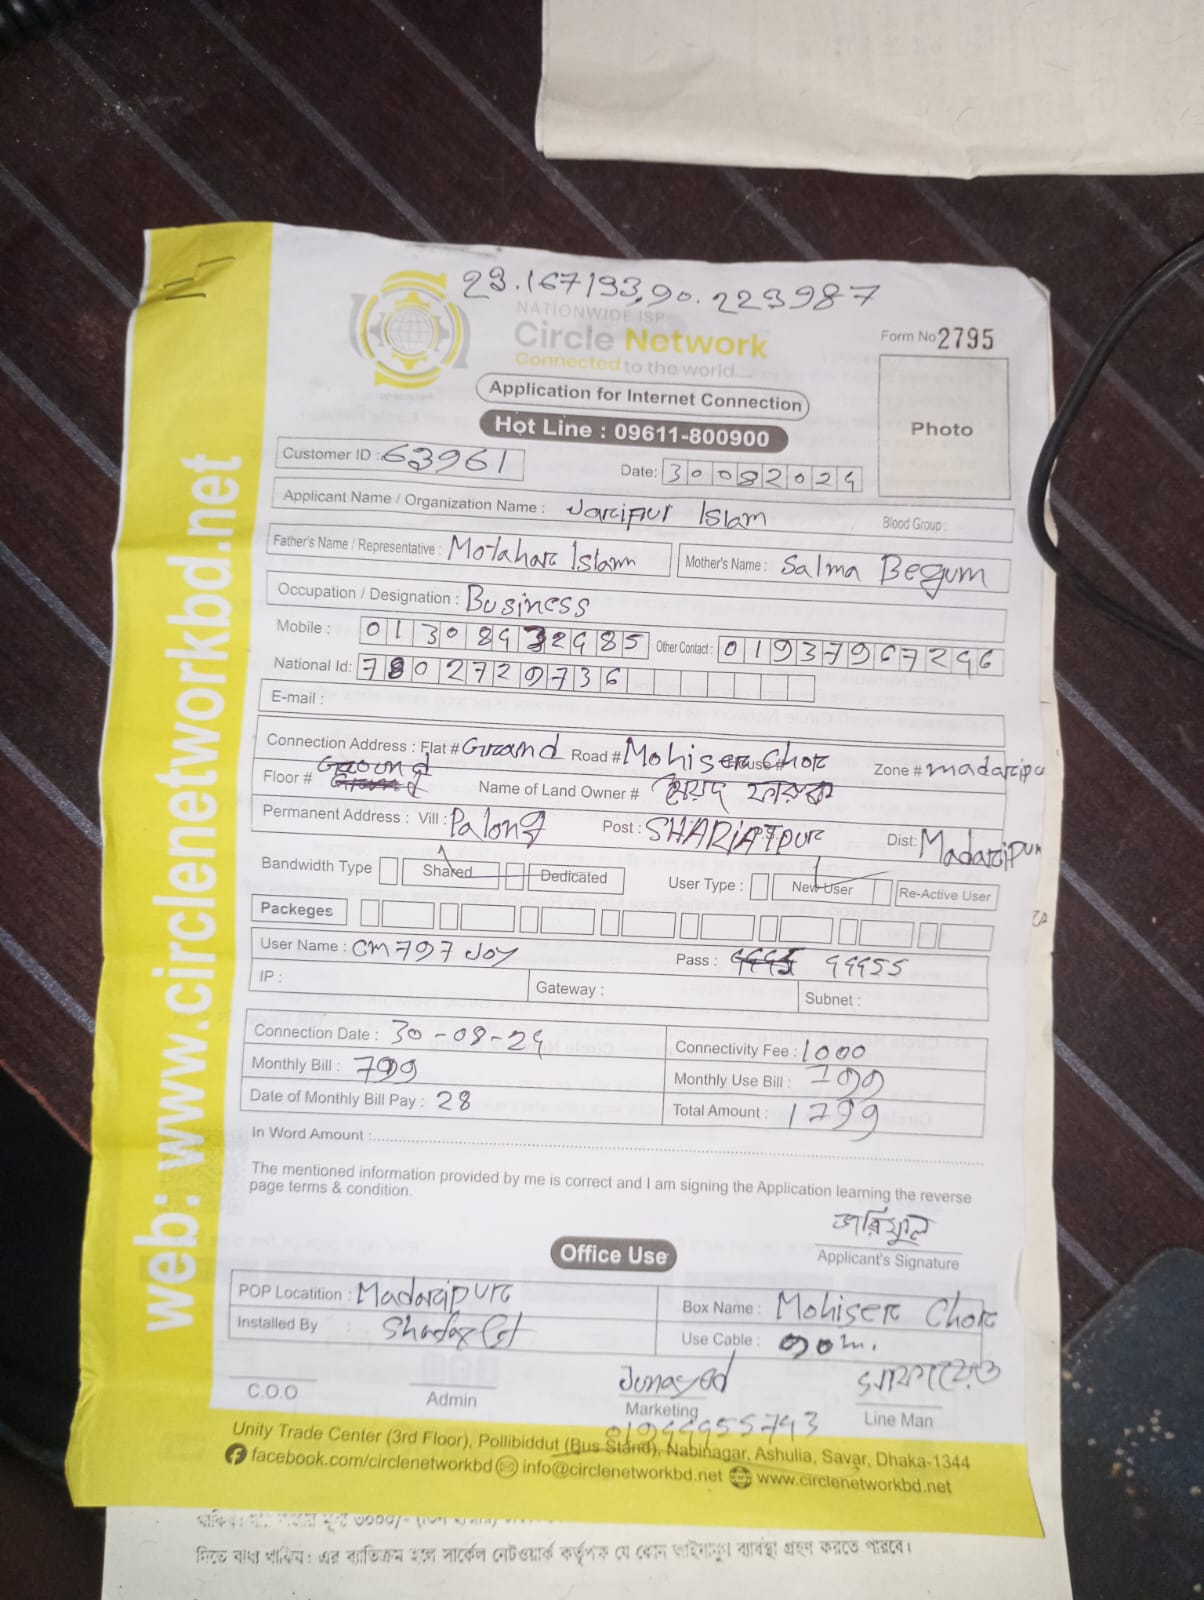 23.167193,90.223987
NATIONWIDE ISP
Circle Network
Connected to the world...
Form No 2795
Application for Internet Connection
Photo
Hot Line : 09611-800900
Customer ID : 63961
Date: 30082024
Applicant Name / Organization Name : Jarcipur Islam Blood Group :
Father's Name / Representative : Motaharc Islam Mother's Name : Salma Begum
Occupation / Designation : Business
Mobile : 01308432485 Other Contact : 01937967296
National Id: 7802729736
E-mail :
Connection Address : Flat # Grcand Road # Mohiserc Chorc Zone # madarcipu
Floor # Ground Name of Land Owner # সৈয়দ ফারুক
Permanent Address : Vill : Palong Post : SHARIATPURC Dist: Madarcipur
Bandwidth Type Shared Dedicated User Type : New User Re-Active User
Packeges
User Name : CM797 Joy Pass : 44455
IP : Gateway : Subnet :
Connection Date : 30-08-24 Connectivity Fee : 1000
Monthly Bill : 799 Monthly Use Bill : 799
Date of Monthly Bill Pay : 28 Total Amount : 1799
In Word Amount :
The mentioned information provided by me is correct and I am signing the Application learning the reverse
page terms & condition.
জরিফুল
Applicant's Signature
Office Use
POP Locatition : Madarcipurc Box Name : Mohiserc Chorc
Installed By : Use Cable : 90m.
Junayed
C.O.O Admin Marketing Line Man
01944455743
Unity Trade Center (3rd Floor), Pollibiddut (Bus Stand), Nabinagar, Ashulia, Savar, Dhaka-1344
facebook.com/circlenetworkbd info@circlenetworkbd.net www.circlenetworkbd.net
web: www.circlenetworkbd.net
দিতে বাধ্য থাকিব। এর ব্যতিক্রম হলে সার্কেল নেটওয়ার্ক কর্তৃপক্ষ যে কোন আইনানুগ ব্যবস্থা গ্রহণ করতে পারবে।